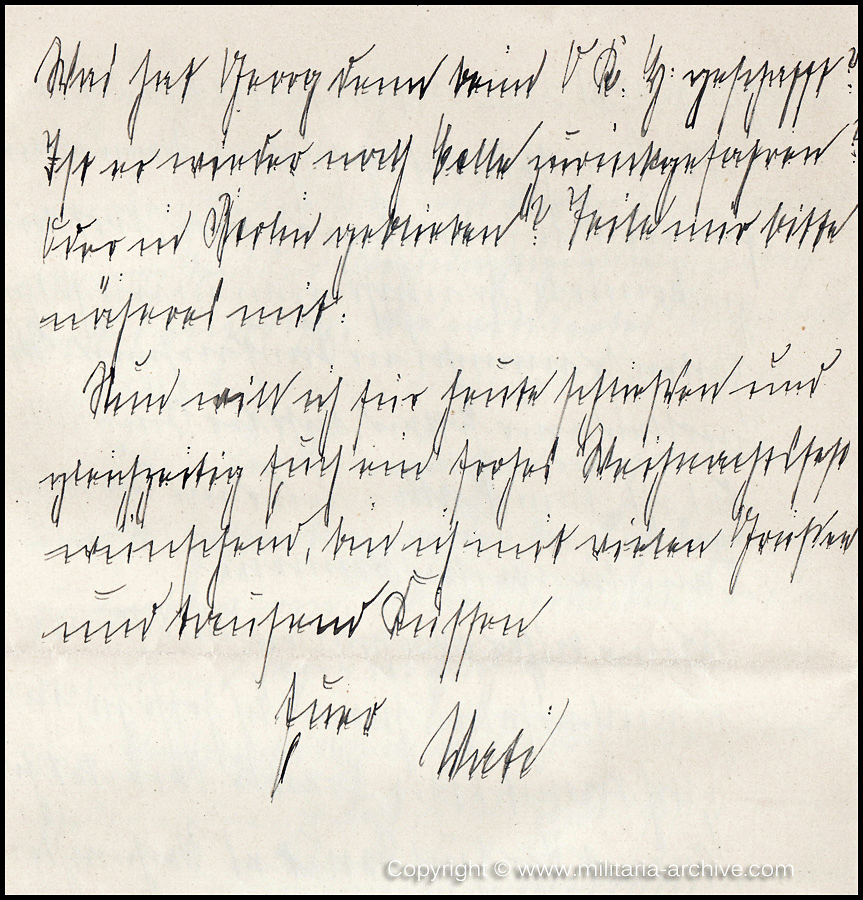 Was hat Georg denn beim O. K. H. geschafft?
Ist er wieder nach Celle zurückgefahren?
Oder in Berlin geblieben? Teile mir bitte
näheres mit.
Nun will ich für heute schließen und
gleichzeitig Euch ein frohes Weihnachtsfest
wünschend, bin ich mit vielen Grüßen
und tausend Küssen
Euer Vati
Copyright © www.militaria-archive.com